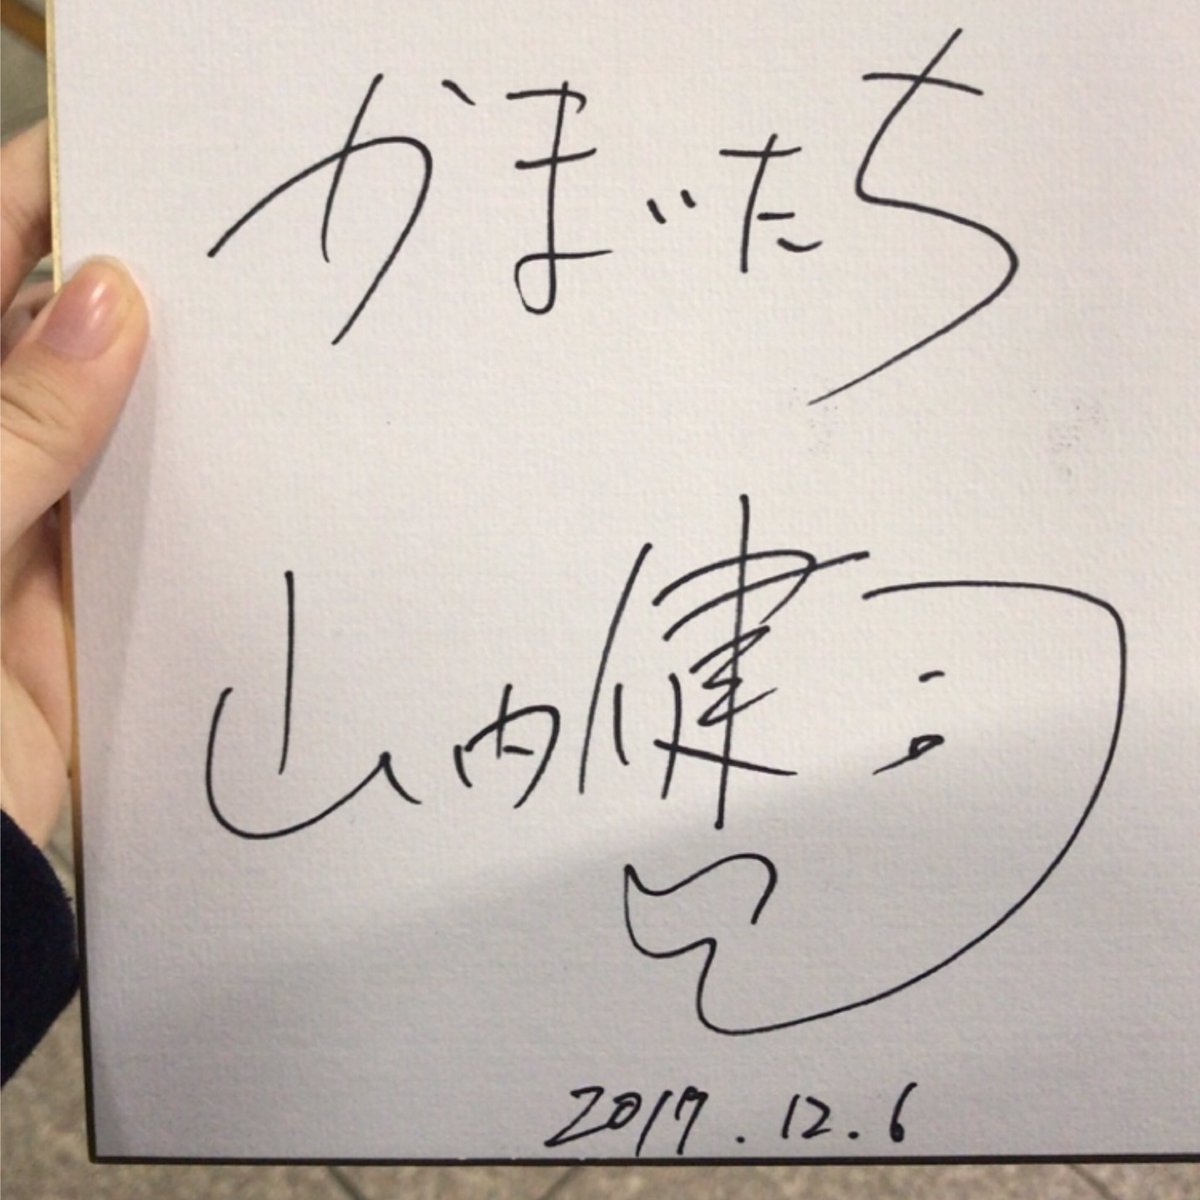 かまいたち
山内健司
2017.12.6